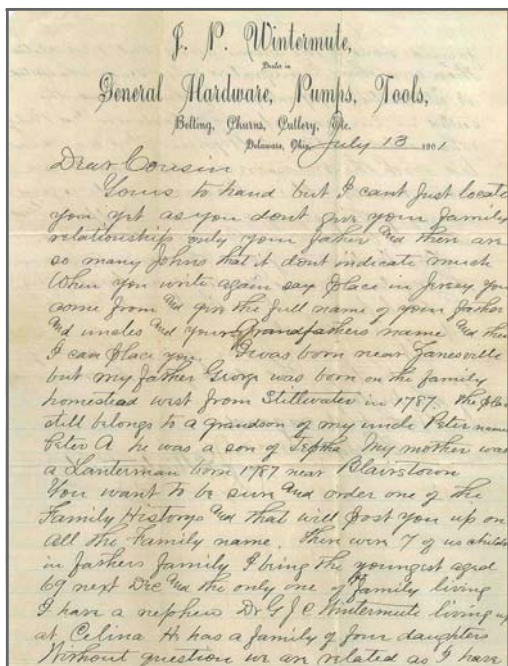 J. P. Wintermute,
Dealer in
General Hardware, Pumps, Tools,
Belting, Churns, Cutlery, Etc.
Delaware, Ohio, July 13 1901
Dear Cousin
Yours to hand but I cant Just locate
you yet as you dont give your family
relationship only your father and there are
so many Johns that it dont indicate much
When you write again say place in Jersey you
come from and give the full name of your father
and uncles and your Grandfathers name and then
I can place you. I was born near Zanesville
but my father George was born on the family
homestead west from Stillwater in 1787. the place
still belongs to a grandson of my uncle Peter name
Peter A he was a son of My mother was
a Lanterman born 1787 near Blairstown
You want to be sure and order one of the
Family Historys and that will post you up on
all the Family name. There were 7 of us children
in fathers family I being the youngest aged
69 next Dec and the only one of family living
I have a nephew Dr G J C Wintermute living up
at Celina He has a family of four daughters
Without question we are related as I have